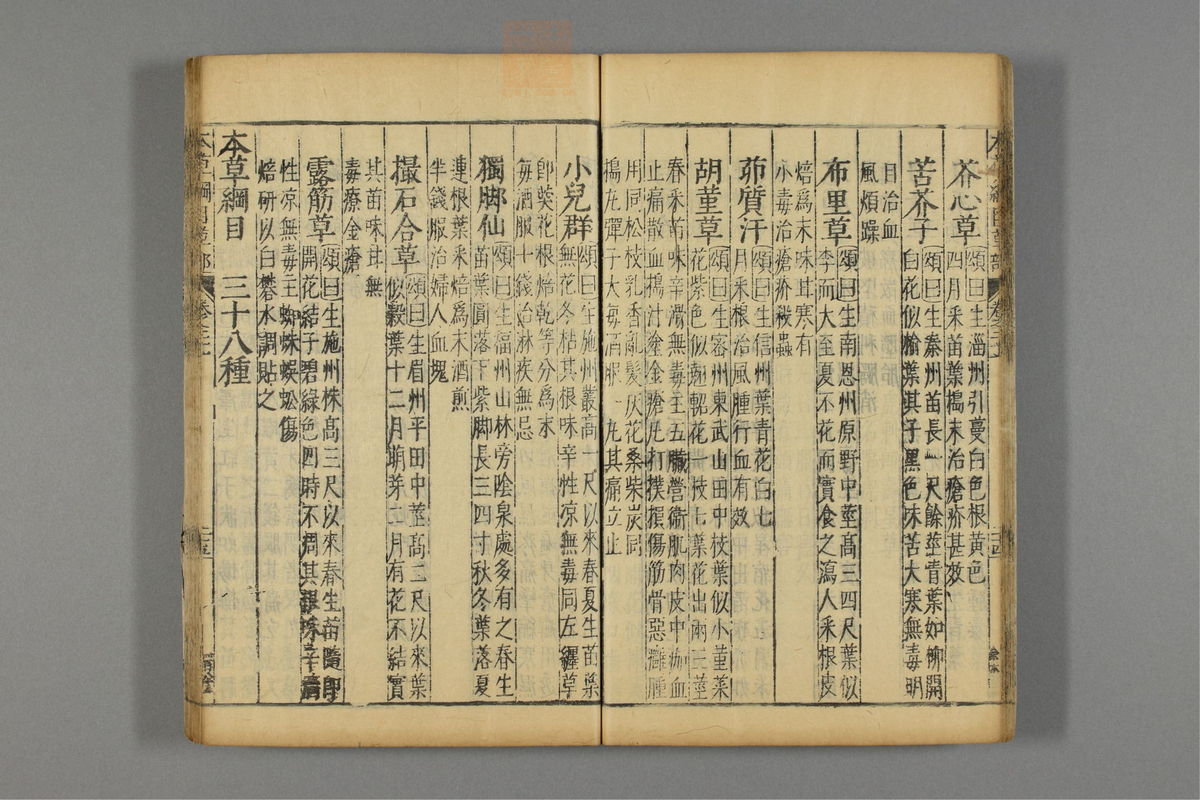 芥心草 頌曰生淄州引蔓白色根黃色
四月采苗葉搗末治瘡疥甚效
苦芥子 頌曰生秦州苗長一尺餘莖青葉如柳開
白花似榆莢其子黑色味苦大寒無毒明
目治血
風煩躁
布里草 頌曰生南恩州原野中莖高三四尺葉似
李而大至夏不花而實食之瀉人采根皮
焙爲末味甘寒有
小毒治瘡疥殺蟲
茆質汗 頌曰生信州葉青花白七
月采根治風腫行血有效
胡菫草 頌曰生密州東武山田中枝葉似小菫菜
花紫色似翹軺花一枝七葉花出兩三莖
春采苗味辛滑無毒主五臟營衛肌肉皮中瘀血
止痛散血搗汁塗金瘡凡打撲損傷筋骨惡癰腫
用同松枝乳香亂髮灰花桑柴炭同
搗丸彈子大每酒服 丸其痛立止
小兒群 頌曰生施州叢高一尺以來春夏生苗葉
無花冬枯其根味辛性凉無毒同左纒草
即旋花根焙乾等分爲末
每酒服一錢治淋疾無忌
獨脚仙 頌曰生福州山林旁陰泉處多有之春生
苗葉圓 落下紫脚長三四寸秋冬葉落夏
連根葉采焙爲末酒煎
半錢服治婦人血塊
撮石合草 頌曰生眉州平田中莖高二尺以來葉
似穀葉十二月萌芽二月有花不結實
其苗味甘無
毒療金瘡
露筋草 頌曰生施州株高三尺以來春生苗隨即
開花結子碧綠色四時不凋其根味辛濇
性凉無毒主蜘蛛蜈蚣傷
焙研以白礬水調貼之
本草綱目 三十八種